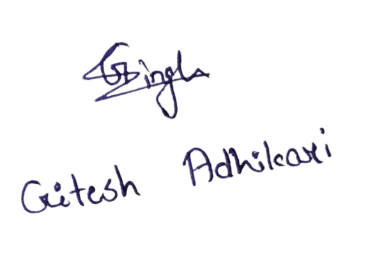 GSingla
Gritesh Adhikari